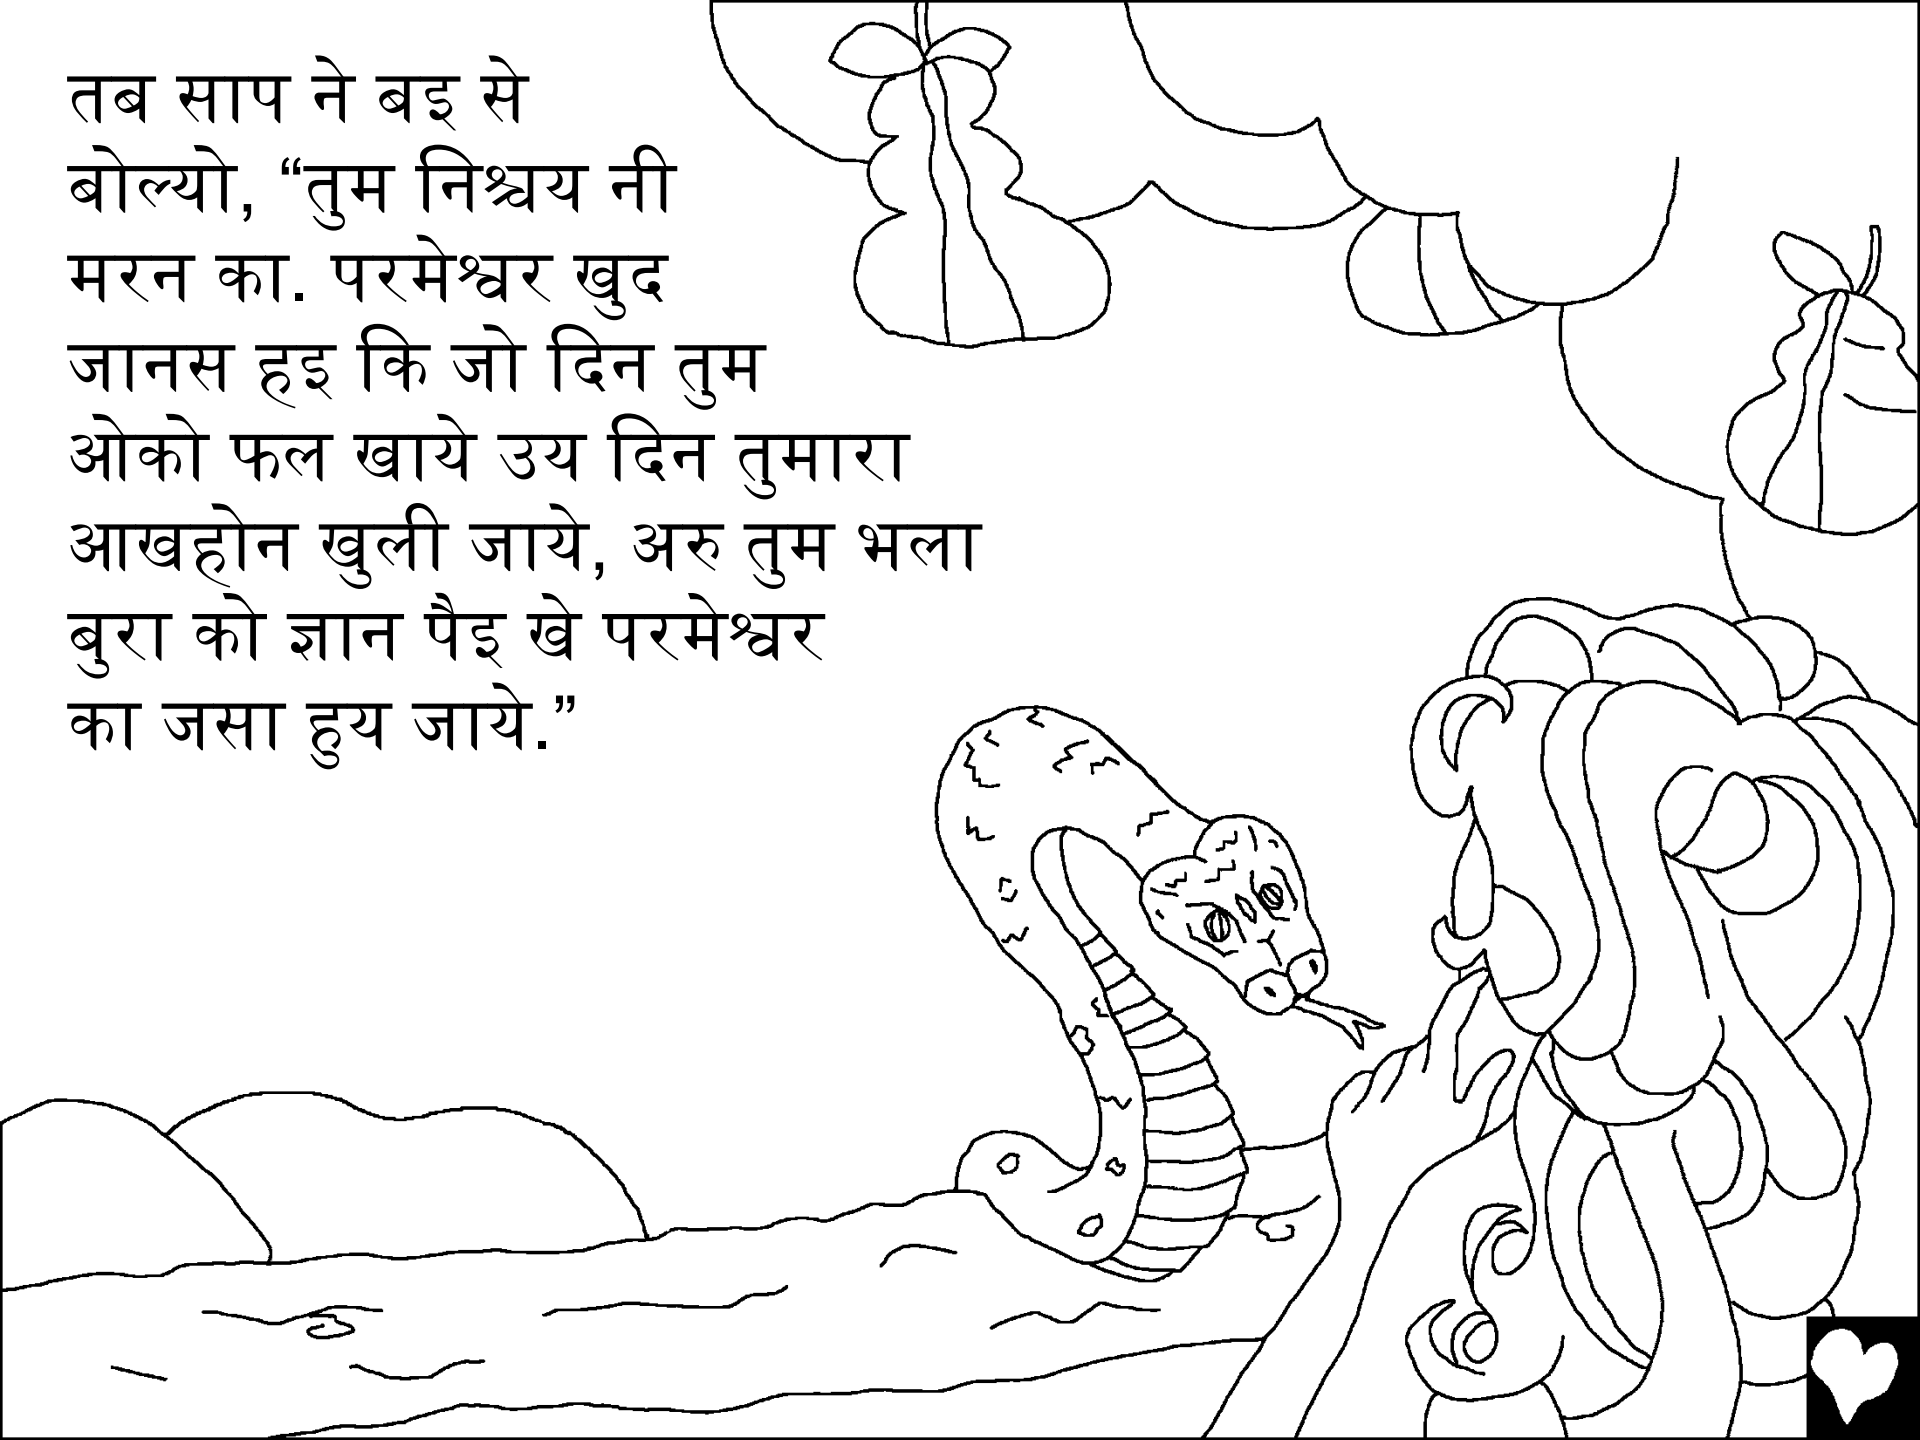 तब साप ने बइ से
बोल्यो, “तुम निश्चय नी
मरन का. परमेश्वर खुद
जानस हइ कि जो दिन तुम
ओको फल खाये उय दिन तुमारा
आखहोन खुली जाये, अरु तुम भला
बुरा को ज्ञान पैइ खे परमेश्वर
का जसा हुय जाये.”